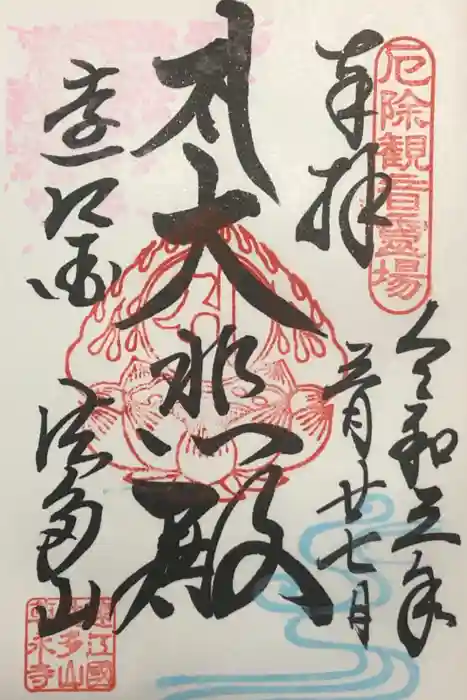 厄除観音霊場
奉拝
令和三年
三月廿七日
大悲殿
遠江国
法多山
遠江國
法多山
尊永寺